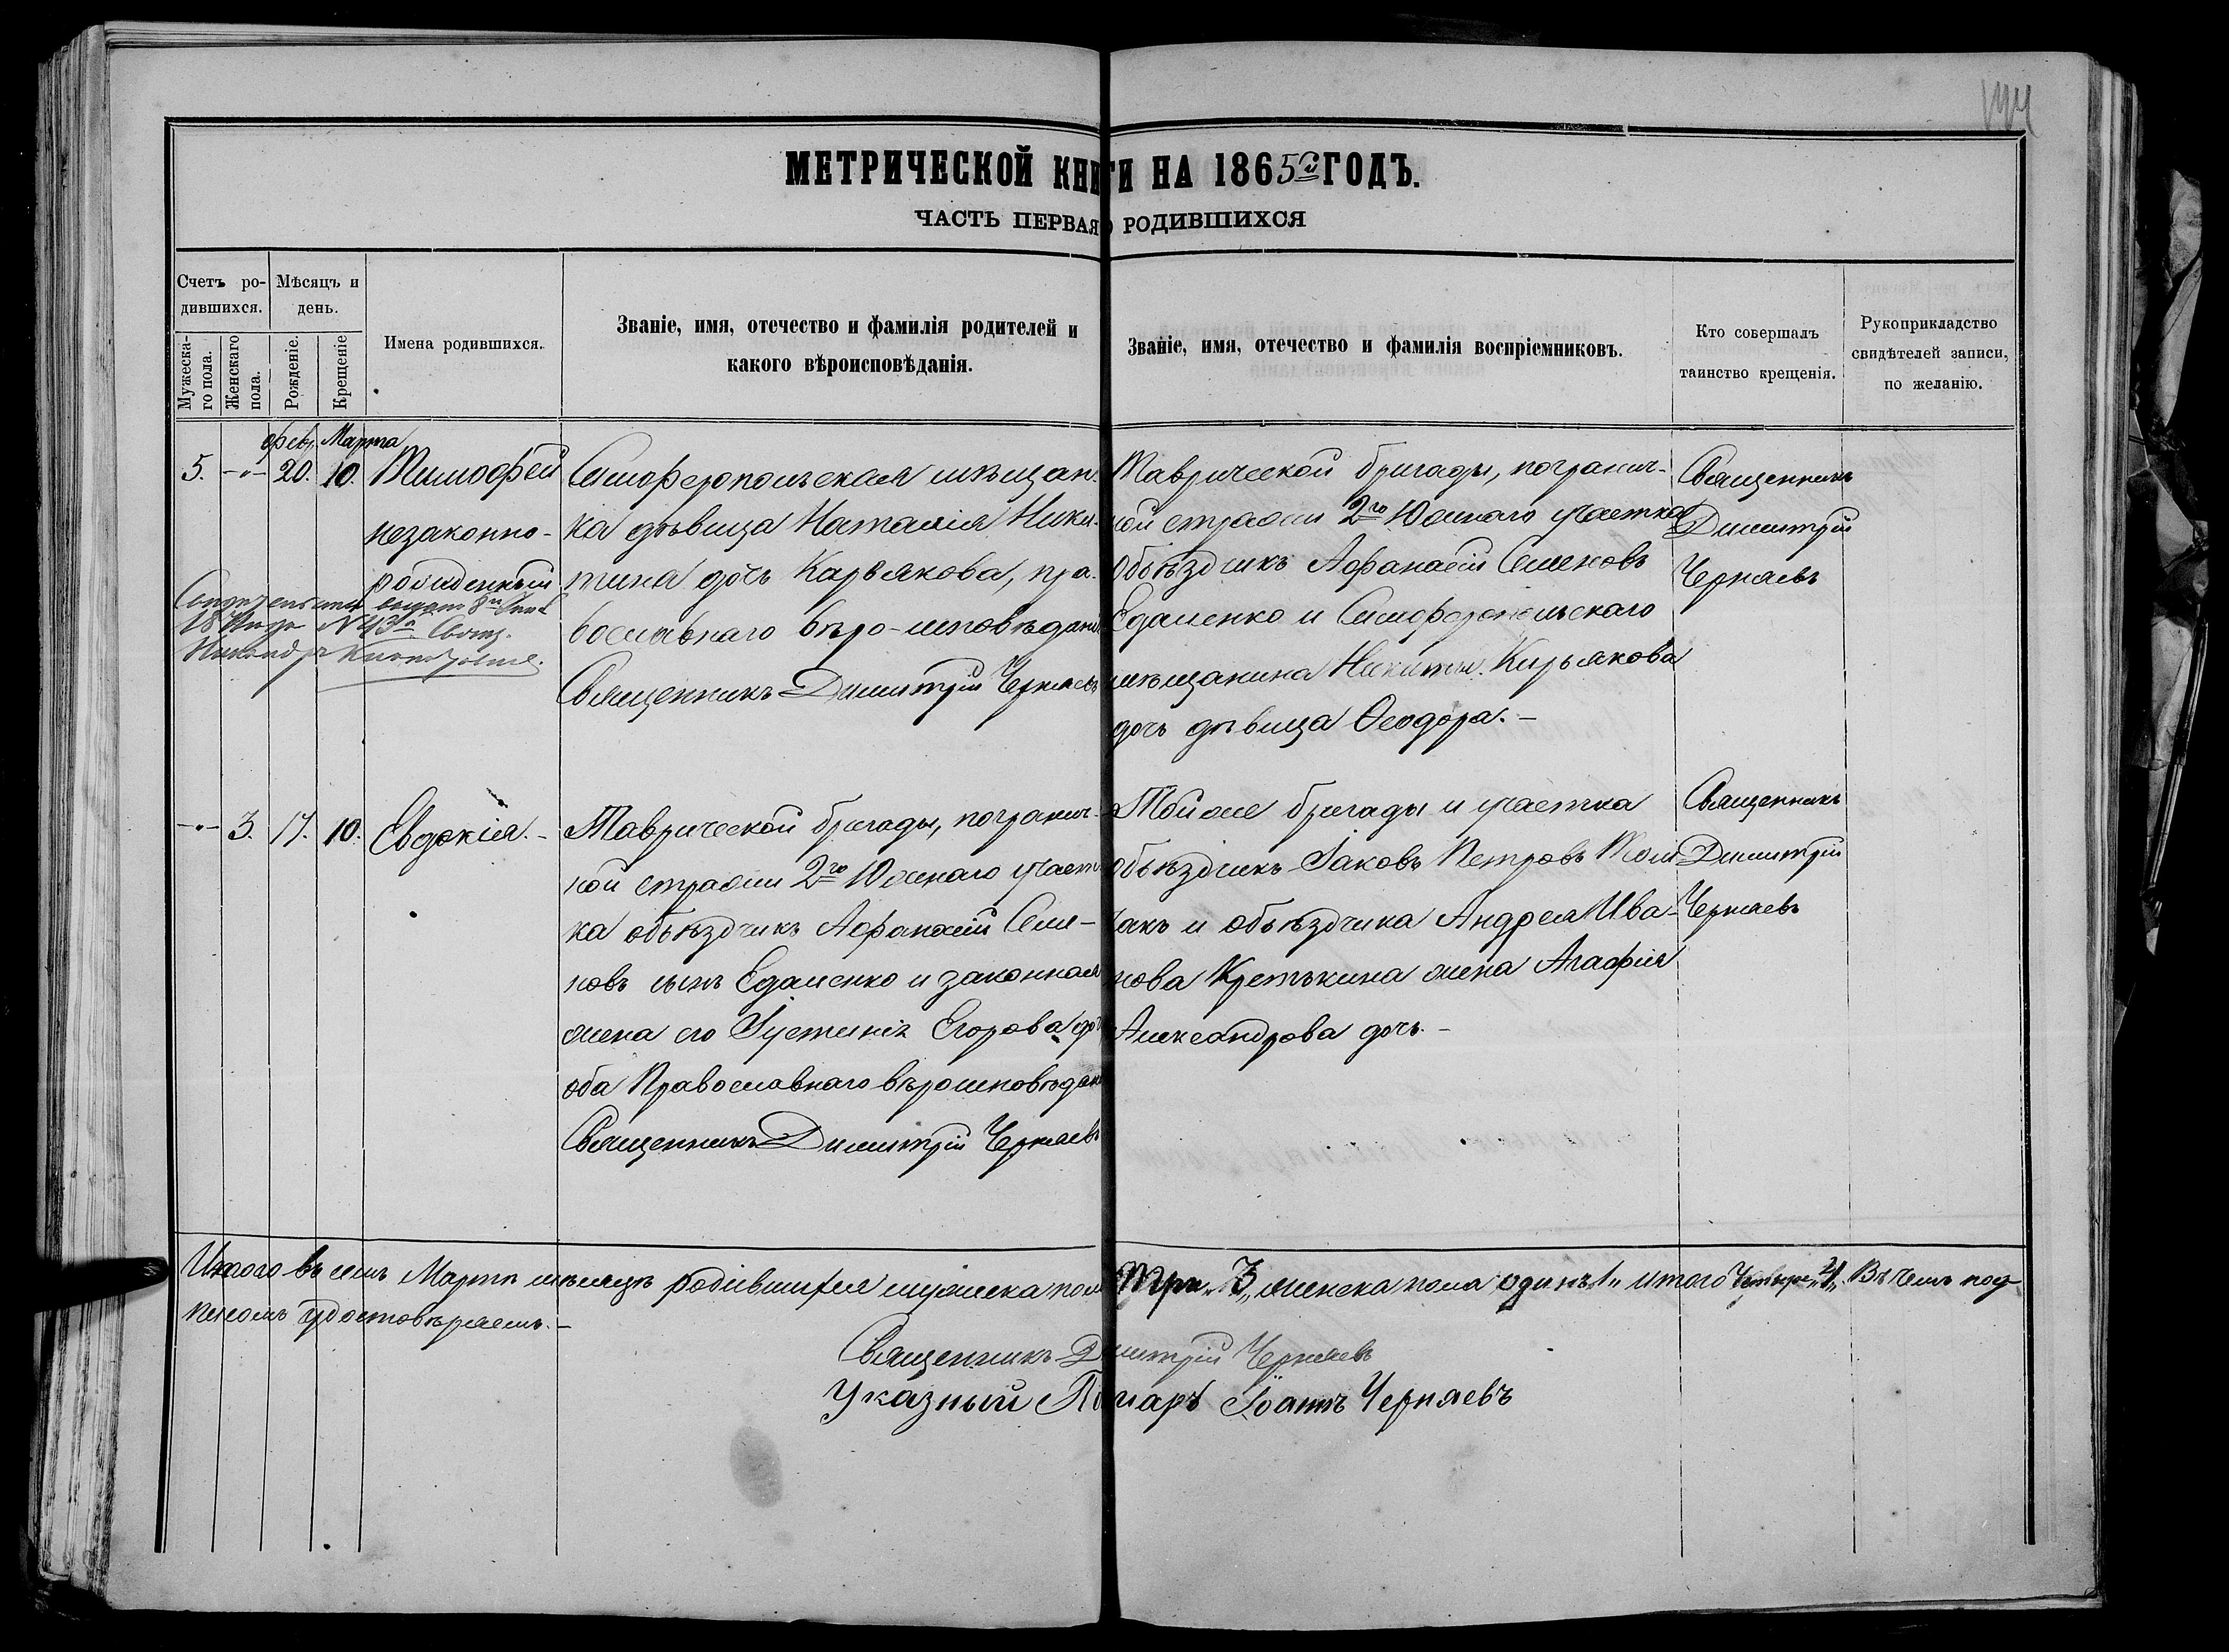 144
МЕТРИЧЕСКОЙ КНИГИ НА 1865й ГОДЪ.
ЧАСТЬ ПЕРВАЯ О РОДИВШИХСЯ
Счетъ ро-
дившихся.
Мужеска-
го пола.
Женскаго
пола.
Мѣсяцъ и
день.
Рожденіе.
Крещеніе
Имена родившихся.
Званіе, имя, отечество и фамилія родителей и
какого вѣроисповѣданія.
Званіе, имя, отечество и фамилія воспріемниковъ.
Кто совершалъ
таинство крещенія.
Рукоприкладство
свидѣтелей записи,
по желанію.
Фев. Марта
5. -"- 20. 10.
Тимофей
незаконно-
рожденный
18 N 43
Симферопольская мѣщан-
ка дѣвица Наталія Ники-
тина дочь Карьякова, пра-
вославнаго вѣро-исповѣдані
Священникъ Димитрій Черняевъ
Таврической бригады, погранич-
ной стражи 2го Южнаго участка
Объѣздчикъ Афанасій Семеновъ
Едаменко и Симферопольскаго
мѣщанина Никиты Кирьякова
дочь дѣвица Ѳеодора.-
Священникъ
Димитрій
Черняевъ
-"- 3. 17. 10.
Евдокія.-
Таврической бригады, погранич-
ной стражи 2го Южнаго участ
ка объѣздчикъ Афанасій Семе-
новъ сынъ Едаменко и законная
жена его Іустинія Егорова до
оба Православнаго вѣроисповѣдан
Священникъ Димитрій Черняевъ
Тойже бригады и участка
объѣздчикъ Іаковъ Петровъ
и объѣздчика Андрея Ива-
нова Кретькина жена Агафія
Александрова дочь.-
Священникъ
Димитрій
Черняевъ
Итого въ семъ Мартѣ мѣсяцѣ родившихся мужеска пола Три „3„ женска пола одинъ „1„ итого Четыре „4„. Въ чемъ под-
писомъ удостовѣряемъ.-
Священникъ Димитрій Черняевъ
Указный Понарь Іоаннъ Черняевъ